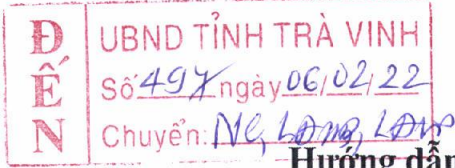 ĐẾN
UBND TỈNH TRÀ VINH
Số 497 ngày 06/02/22
Chuyển: NC,
Hướng dẫn